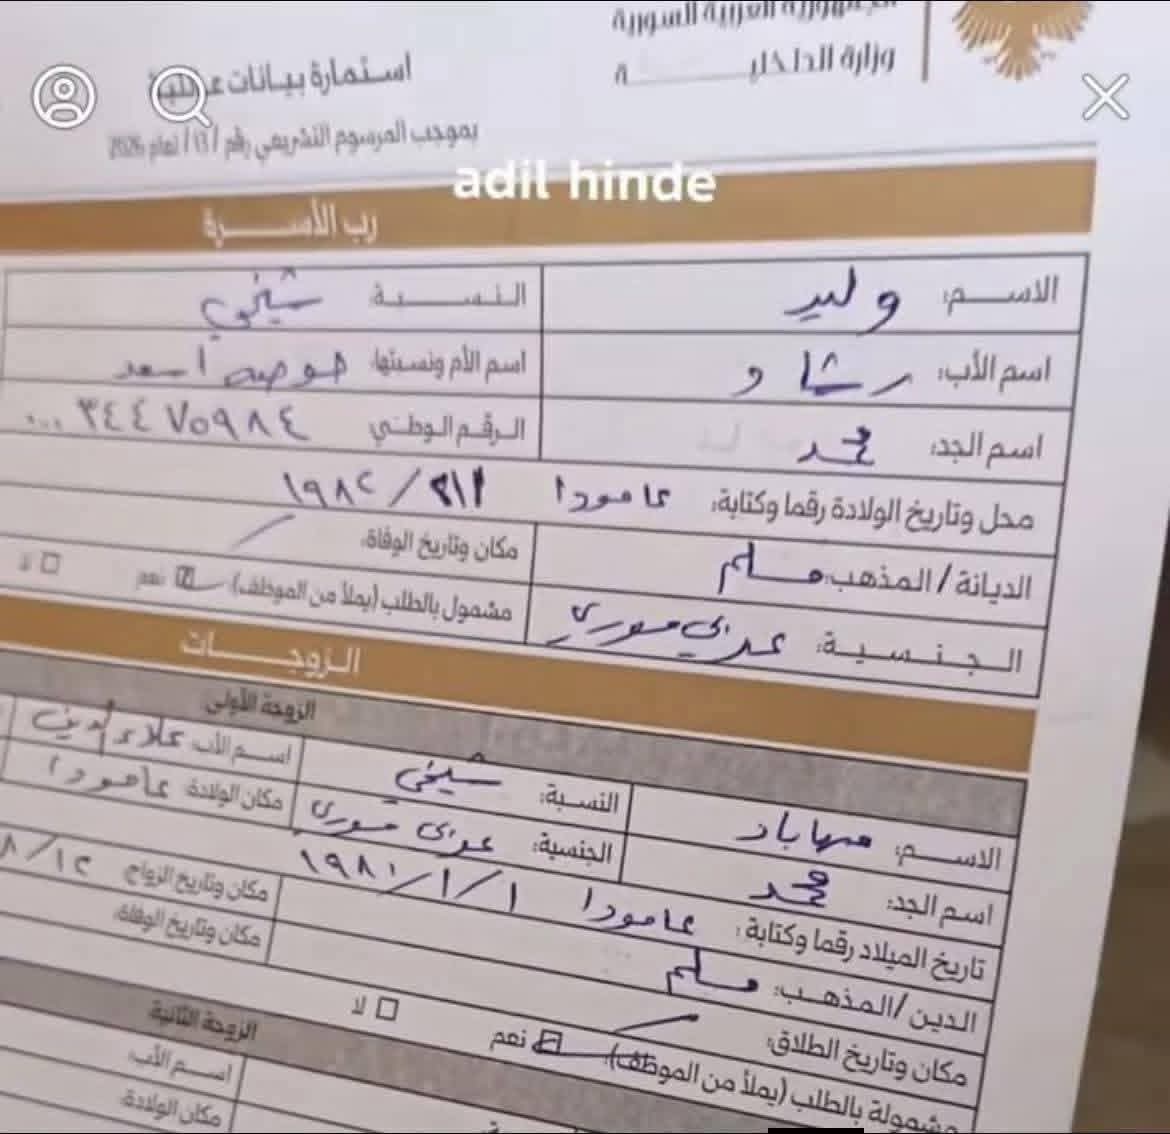 الجمهورية العربية السورية
وزارة الداخليـــــــة
استمارة بيانات عائلية
بموجب المرسوم التشريعي رقم /13/ لعام 2026
adil hinde
رب الأســـــرة
الاســـم: وليد
النســـبة شيخي
اسم الأب: رشاد
اسم الأم ونسبتها: أسعد
اسم الجد: محمد
الرقم الوطني ٣٤٤٧٥٩٨٤ ...
محل وتاريخ الولادة رقما وكتابة: عامودا ١٩٨٢
الديانة/المذهب: مسلم
مكان وتاريخ الوفاة: /
الجـنـسـيـة: عربي سوري
مشمول بالطلب (يملأ من الموظف) نعم لا
الزوجـــات
الزوجة الأولى
الاســـم: مهاباد
النسبة: شيخي
اســـم الأب: علاء الدين
اسم الجد: محمد
الجنسية: عربي سوري
مكان الولادة: عامودا
تاريخ الميلاد رقما وكتابة: عامودا ١/١/١٩٨١
مكان وتاريخ الزواج: ٨/١٢
الدين/المذهـــب: مسلم
مكان وتاريخ الوفاة:
مكان وتاريخ الطلاق: /
مشمولة بالطلب (يملأ من الموظف): نعم لا
الزوجة الثانية
اســـم الأب:
مكان الولادة: